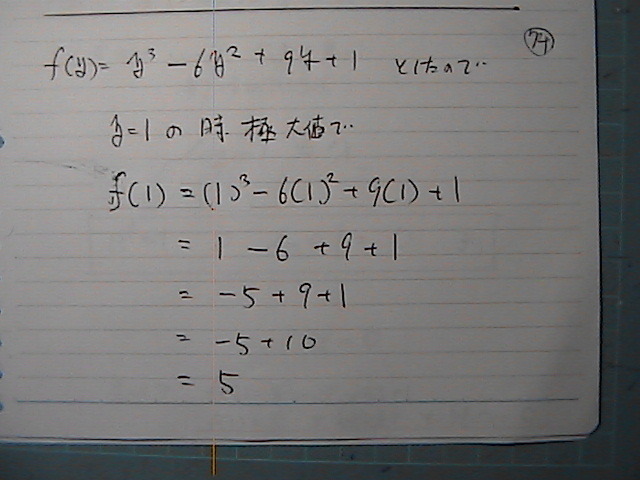 74
f(y) = y³ - 6y² + 9y + 1 としたので
y=1 の時 極大値で
f(1) = (1)³ - 6(1)² + 9(1) + 1
= 1 - 6 + 9 + 1
= -5 + 9 + 1
= -5 + 10
= 5